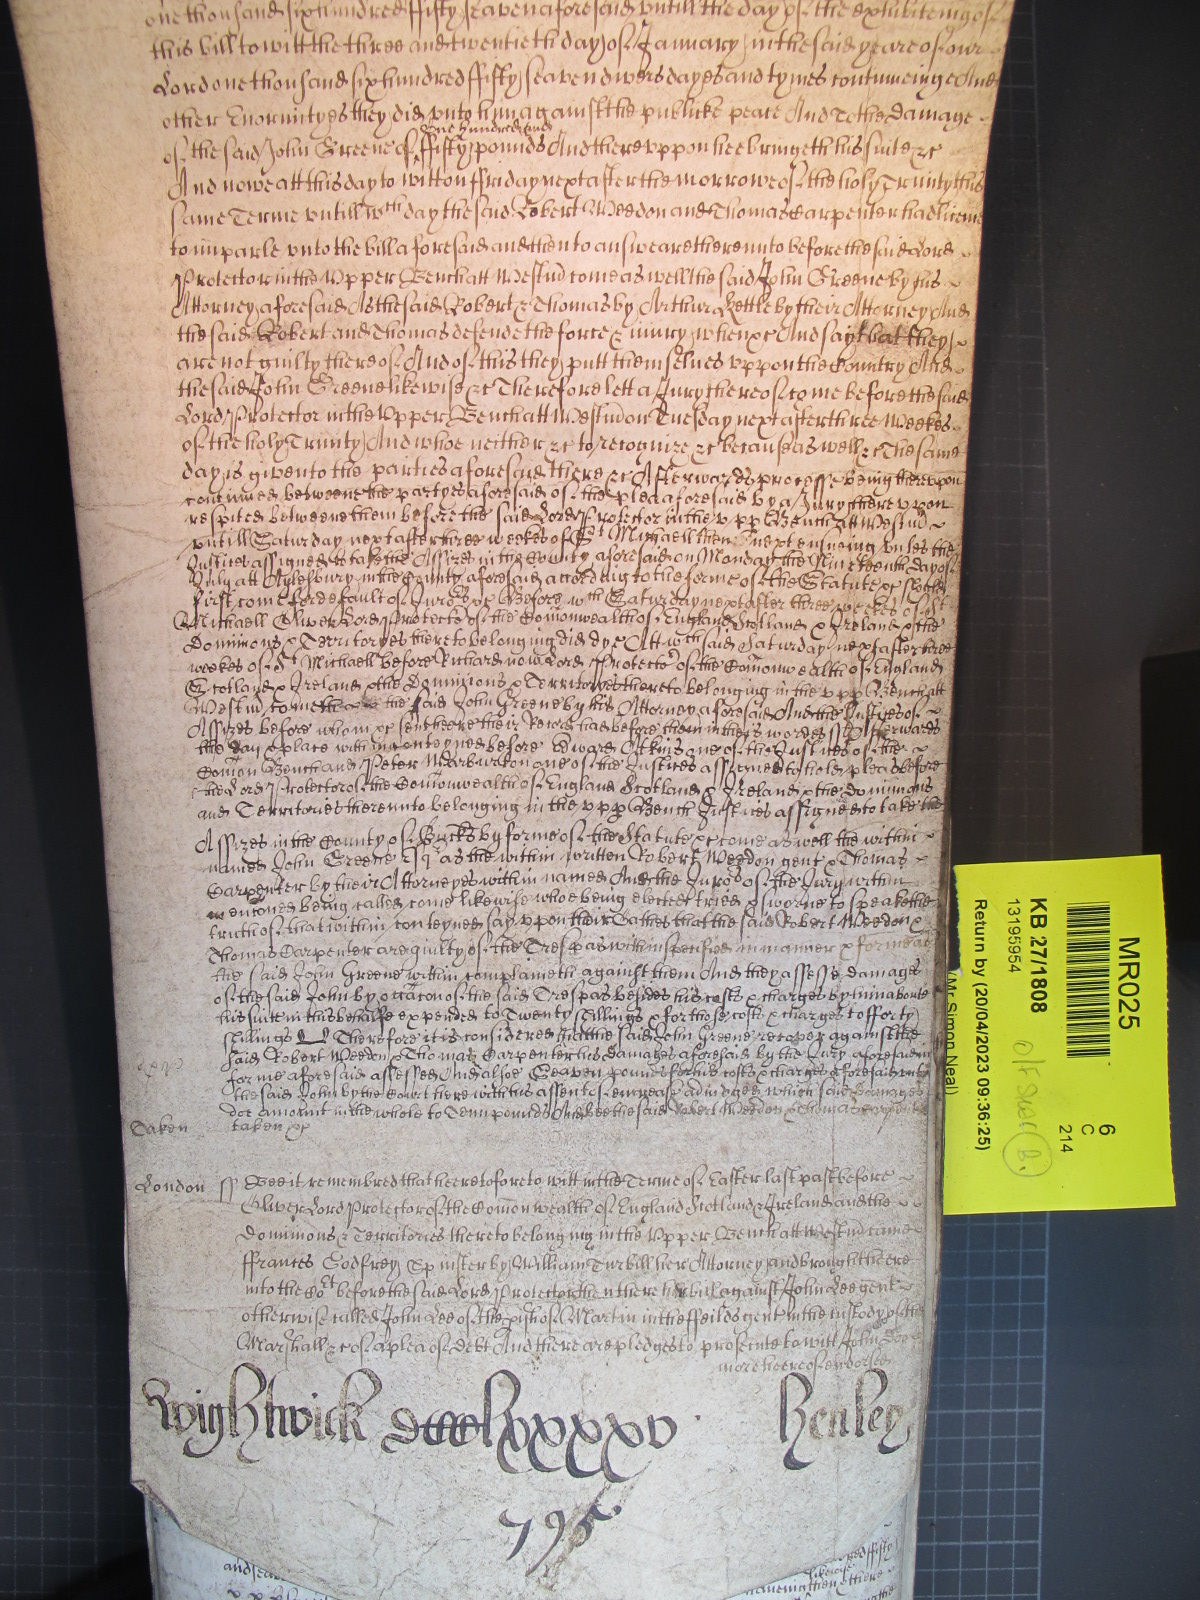 one thousand sixhundred ffifty seaven aforesaid untill the day of the exhibiteing of
this bill to witt the three and twentieth day of January in the said yeare of our
Lord one thousand sixhundred ffifty seaven divers dayes and tymes contynueinge And
other Enormityes they did unto him against the publicke peace And To the damage
one hundred and
of the said John Greene of ffifty pounds And thereuppon hee bringeth his suite &c
And nowe att this day to witt on ffriday next after the morrowe of the holy Trinity this
same Terme untill wch day the said Robert Weedon and Thomas Carpenter had licence
to imparle unto the bill aforesaid and then to answeare thereunto before the said Lord
Protector in the Upper Bench att Westm̃ come as well the said John Greene by his
Attorney aforesaid As the said Robert & Thomas by Arthur Kettleby their Attorney And
the said Robert and Thomas defende the force & iniury when &c And say that they
are not guilty thereof And of this they putt themselves uppon the Country And
the said John Greene likewise &c Therefore lett a Jury thereof come before the said
Lord Protector in the Upper Bench att Westm̃ on Tuesday next after three Weekes
of the holy Trinity And whoe neither &c to recognize &c because as well &c The same
day is given to the parties aforesaid there &c Afterwards processe being thereupon
continued betweene the partyes aforesaid of the plea aforesaid by a Jury thereuppon
respited betweene them before the said Lord Protector in the upp Bench att Westm̃
untill Saturday next after three weekes of St Michaell then next ensueing unles the
Justices assigned to take the Assizes in the County aforesaid on Monday the Nineteenth day of
July att Aylesbury in the County aforesaid according to the forme of the Statute &c should
first come for default of Jurors &c Before wch Saturday next after three weekes of St
Michaell Oliver Lord Protector of the Comonwealth of England Scotland & Ireland & the
Dominions & Territoryes thereto belonging did dye Att wch said Saturday next after three
weekes of St Michaell before Richard now Lord Protector of the Comonwealth of England
Scotland & Ireland & the Dominions & Territoryes thereto belonging in the upp Bench att
Westm̃ cometh the said John Greene by his Attorney aforesaid And the Justices of
Assizes before whom &c sent here their Record had before them in theis wordes ss Afterwards
the day & place within conteyned before Edward Atkins one of the Justices of the
Comon Bench and Peter Warburton one of the Justices assigned to hold pleas before
the Lord Protector of the Comonwealth of England Scotland & Ireland & the Dominions
and Territories thereunto belonging in the upp Bench Justices assigned to take the
Assizes in the County of Bucks by forme of the Statute &c come as well the within
named John Greene Esqr as the within written Robert Weedon gent & Thomas
Carpenter by their Attorneyes within named And the Jurors of the Jury within
mentoned being called come likewise whoe being elected tried & sworne to speake the
truth of that within conteyned say uppon their Oathes that the said Robert Weedon &
Thomas Carpenter are guilty of the Trespas within specified in manner & forme as
the said John Greene within complaineth against them And they assesse damages
of the said John by occacon of the said Trespas besides his costs & charges by him about
his suite in this behalfe expended to Twenty shillings & for those costs & charges to fforty
shillings Therefore it is considered that the said John Greene recover against the
said Robert Weedon & Thomas Carpenter his damages aforesaid by the Jury aforesaid in
forme aforesaid assessed And alsoe Seaven pounds for his costs & charges aforesaid unto
the said John by the Court here with his assent of increase adiudged which said damages
doe amount in the whole to Tenn pounds And bee the said Robert Weedon & Thomas Carpenter
Taken taken &c
London ss Bee it remembred that heretofore to witt in the Terme of Easter last past before
Oliver Lord Protector of the Comonwealth of England Scotland & Ireland and the
Dominions & Territories thereto belonging in the Upper Bench att Westm̃ came
ffrances Godfrey Spinster by William Turbill her Attorney and brought here
into the Cort before the said Lord Protector then there her bill against John Lee gent
otherwise called John Lee of the pish of St Martin in the ffeilds gent in the custody of the
Marshall &c of a plea of debt And there are pledges to prosecute to witt John Doe
more hereof endorsed
Wightwick dccclxxxxv Henley
795
MR025
KB 27/1808
13195954
Return by (20/04/2023 09:36:25)
(Mr Simon Neal)
6
C
214